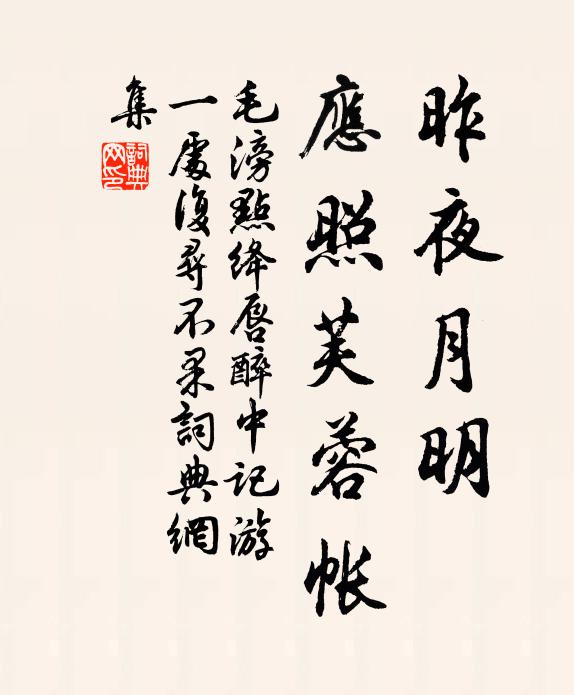 昨夜月明
應照芙蓉帳
毛滂點絳唇醉中記游
一處復尋不果詞典網
集
詞典
网印